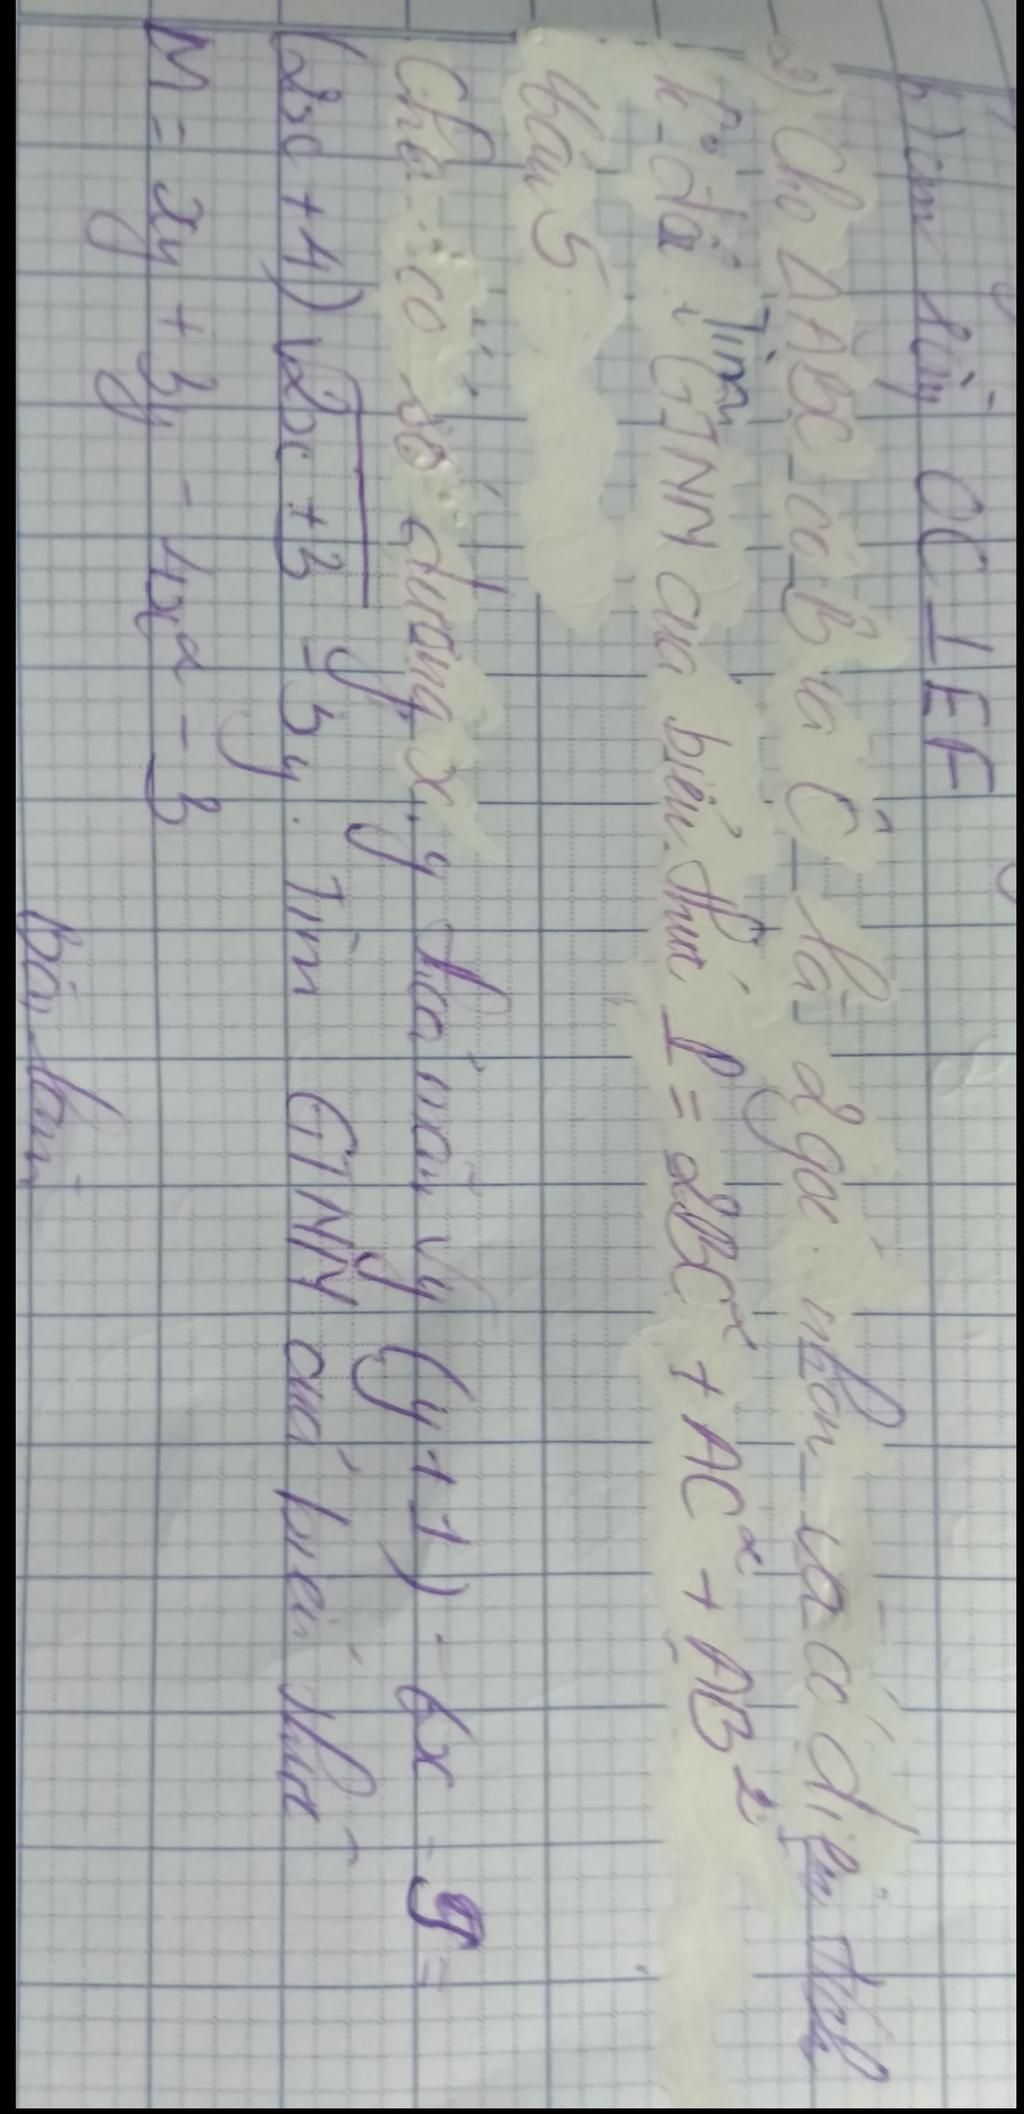 b) cm rằng OC ⊥ EF
2) Cho ΔABC có B̂ và Ĉ là 2 góc nhọn và có diện tích
k° đổi. Tìm GTNN của biểu thức P = 2BC² + AC² + AB²
Câu 5
Cho có số dương x, y thỏa mãn y (y+1) - 6x - 9 =
(2x + 4) √2x + 3 - 3y. Tìm GTNN của biểu thức
M = xy + 3y - 4x² - 3
Bài làm